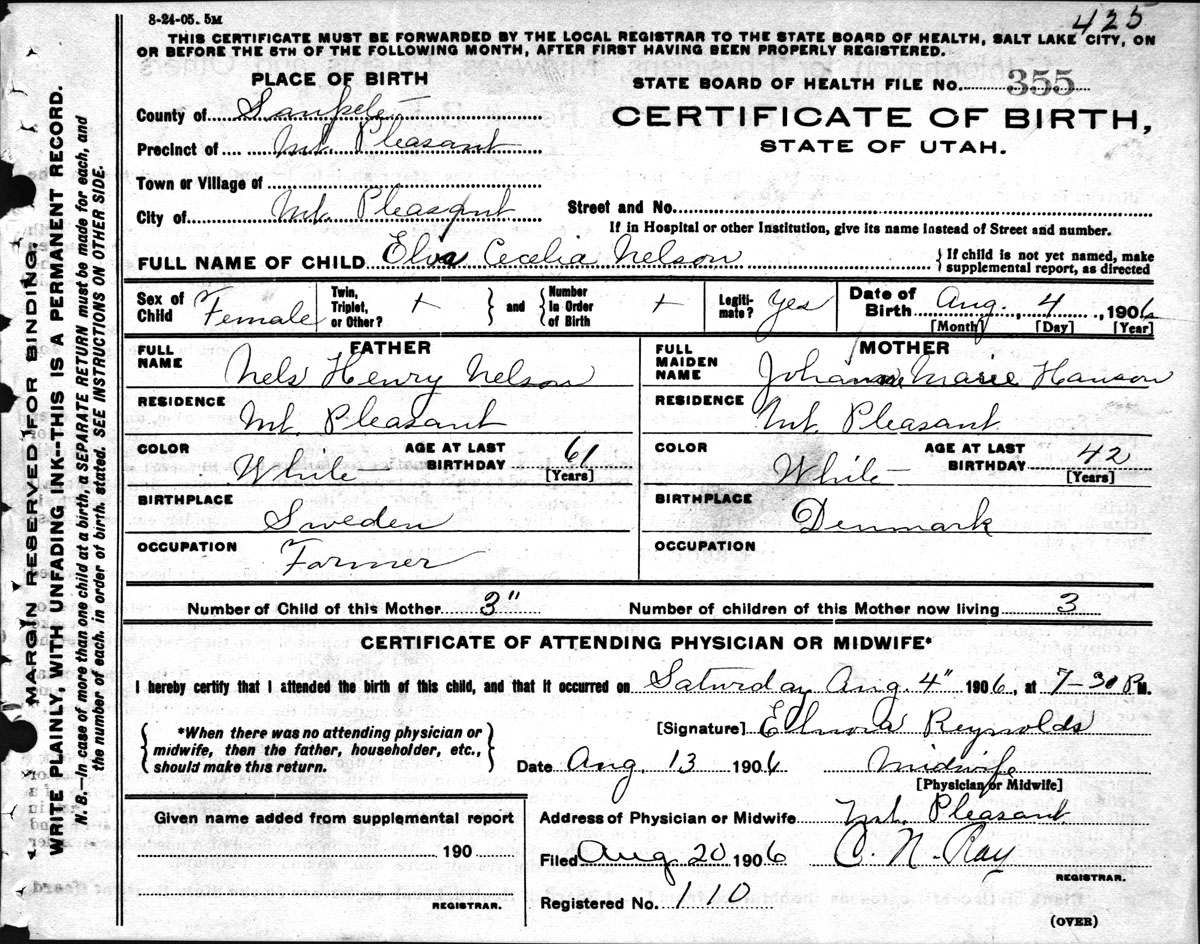 8-24-05. 5M
425
THIS CERTIFICATE MUST BE FORWARDED BY THE LOCAL REGISTRAR TO THE STATE BOARD OF HEALTH, SALT LAKE CITY, ON
OR BEFORE THE 5TH OF THE FOLLOWING MONTH, AFTER FIRST HAVING BEEN PROPERLY REGISTERED.
PLACE OF BIRTH
County of Sanpete
Precinct of Mt. Pleasant
Town or Village of
City of Mt. Pleasant
STATE BOARD OF HEALTH FILE No. 355
CERTIFICATE OF BIRTH,
STATE OF UTAH.
Street and No.
If in Hospital or other Institution, give its name instead of Street and number.
FULL NAME OF CHILD Elva Cecelia Nelson
If child is not yet named, make
supplemental report, as directed
Sex of Child Female
Twin, Triplet, or Other? +
and
Number in Order of Birth +
Legiti-mate? Yes
Date of Birth Aug. 4, 1906
[Month] [Day] [Year]
FATHER
FULL NAME Nels Henry Nelson
RESIDENCE Mt. Pleasant
COLOR White
AGE AT LAST BIRTHDAY 61
[Years]
BIRTHPLACE Sweden
OCCUPATION Farmer
MOTHER
FULL MAIDEN NAME Johanne Marie Hanson
RESIDENCE Mt. Pleasant
COLOR White
AGE AT LAST BIRTHDAY 42
[Years]
BIRTHPLACE Denmark
OCCUPATION
Number of Child of this Mother 3"
Number of children of this Mother now living 3
CERTIFICATE OF ATTENDING PHYSICIAN OR MIDWIFE*
I hereby certify that I attended the birth of this child, and that it occurred on Saturday Aug. 4" 1906, at 7-30 P.M.
*When there was no attending physician or
midwife, then the father, householder, etc.,
should make this return.
[Signature] Ellnora Reynolds
Date Aug. 13 1906 Midwife
[Physician or Midwife]
Given name added from supplemental report
190
REGISTRAR.
Address of Physician or Midwife Mt. Pleasant
Filed Aug 20 1906 C. N. Ray
REGISTRAR.
Registered No. 110
(OVER)
MARGIN RESERVED FOR BINDING.
WRITE PLAINLY, WITH UNFADING INK--THIS IS A PERMANENT RECORD.
N. B.—In case of more than one child at a birth, a SEPARATE RETURN must be made for each, and
the number of each, in order of birth, stated. SEE INSTRUCTIONS ON OTHER SIDE.